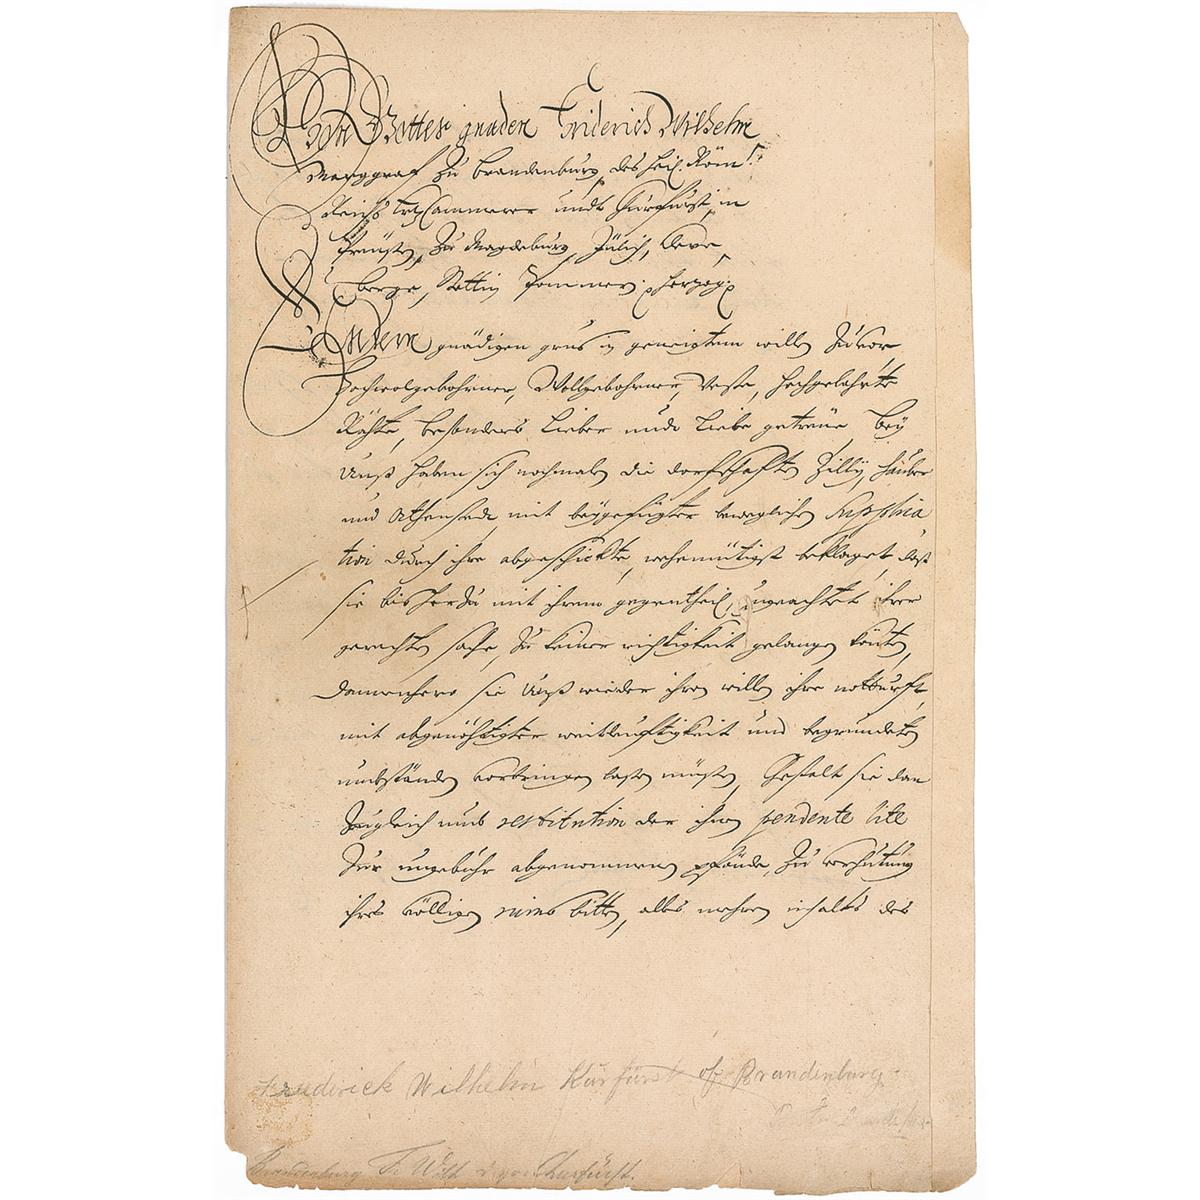 Von Gottes gnaden Friderich Wilhelm
Marggraf Zu Brandenburg, des Heil: Röm:
Reichs ErtzCammerer undt Churfürst, in
Preüßen, Zu Magdeburg, Jülich, Cleve,
Berge, Stettin Pommern p Hertzog p
Unsern gnädigen grus in geneigtem willen Zuvor,
Hochwolgebohrner, Wollgebohrner, Veste, Hochgelahrte
Räthe, besonders Lieber undt Liebe getreüe, Bey
Unß haben sich nochmaln die dorfschafften Zilly,
und Athenstedt, mit beÿgefügter beweglichen Supplica
tion durch ihre abgeschickte, wehemütigst beklaget, daß
sie bishero mit ihrem gegentheil, ungeachtet ihrer
gerechten sache, zu keiner richtigkeit gelangen könten,
dannenhero sie Unß wieder ihren willen ihre notturfft,
mit abgenöhtigter weitleufftigkeit und begründeten
umbständen vorbringen laßen müsten, Gestalt sie dan
Zugleich umb restitution der ihnen pendente lite
Zur ungebühr abgenommenen pfände, Zu verhütung
ihres völligen ruins bitten, alles mehren inhalts des
Frederick Wilhelm Kurfürst of Brandenburg
Brandenburg Fr. Wilh. Churfürst.